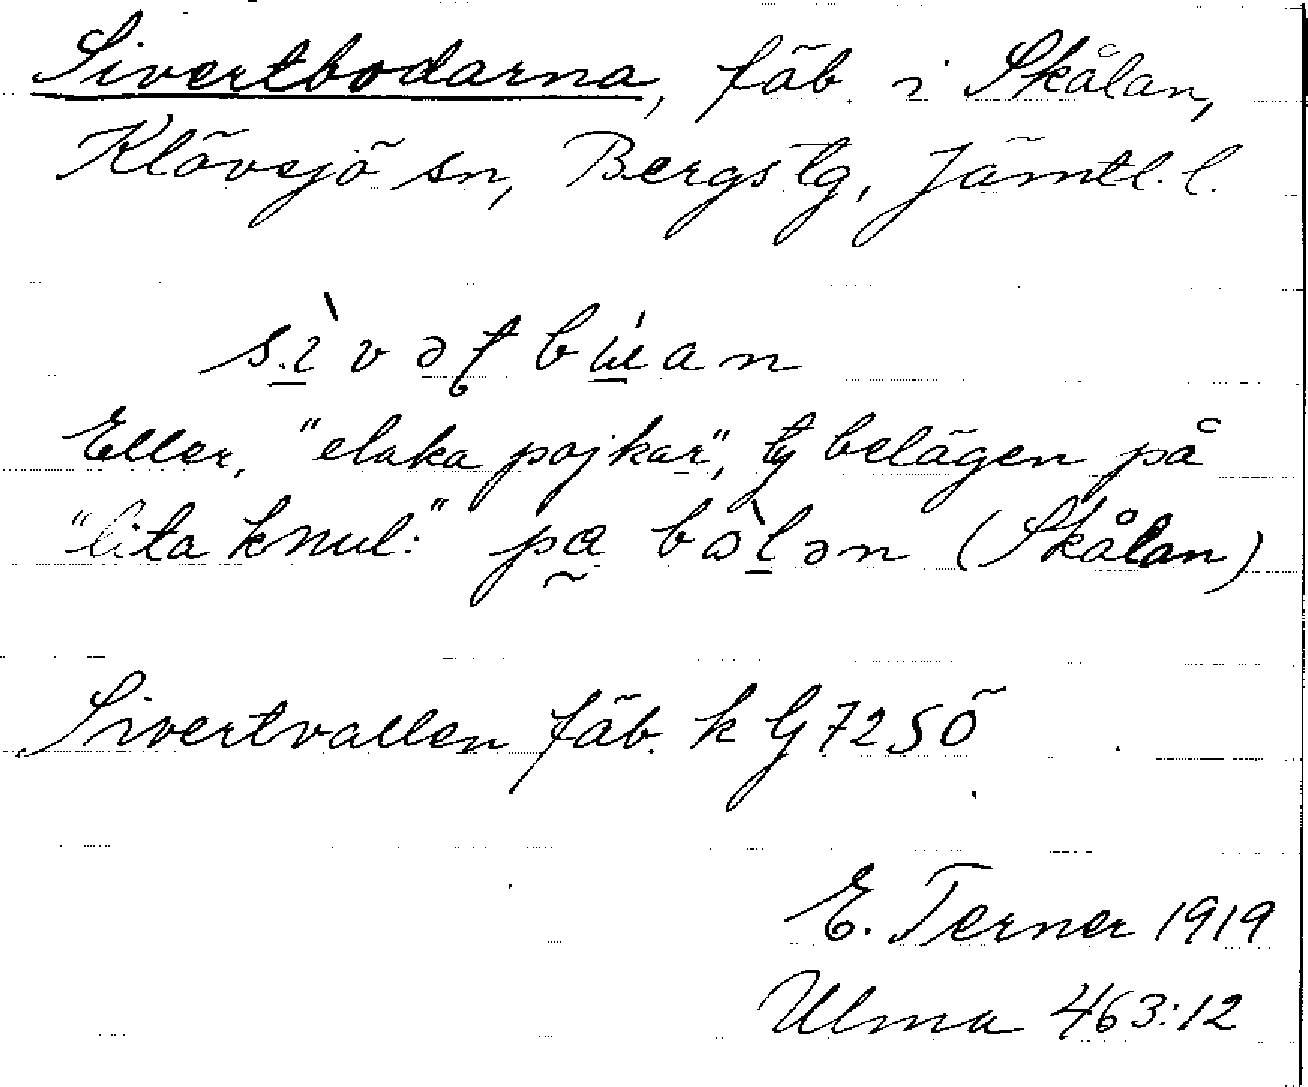 Sivertbodarna, fäb. i Skålan,
Klövsjö sn, Bergs tg, Jämtl. l.
sì̱vəʈbɯ́an
Eller, "elaka pojkar", ty belägen på
"lita knul:" pa̰ bòḻən (Skålan)
Sivertvallen fäb. k G 72 SÖ
E. Terner 1919
Ulma 463:12